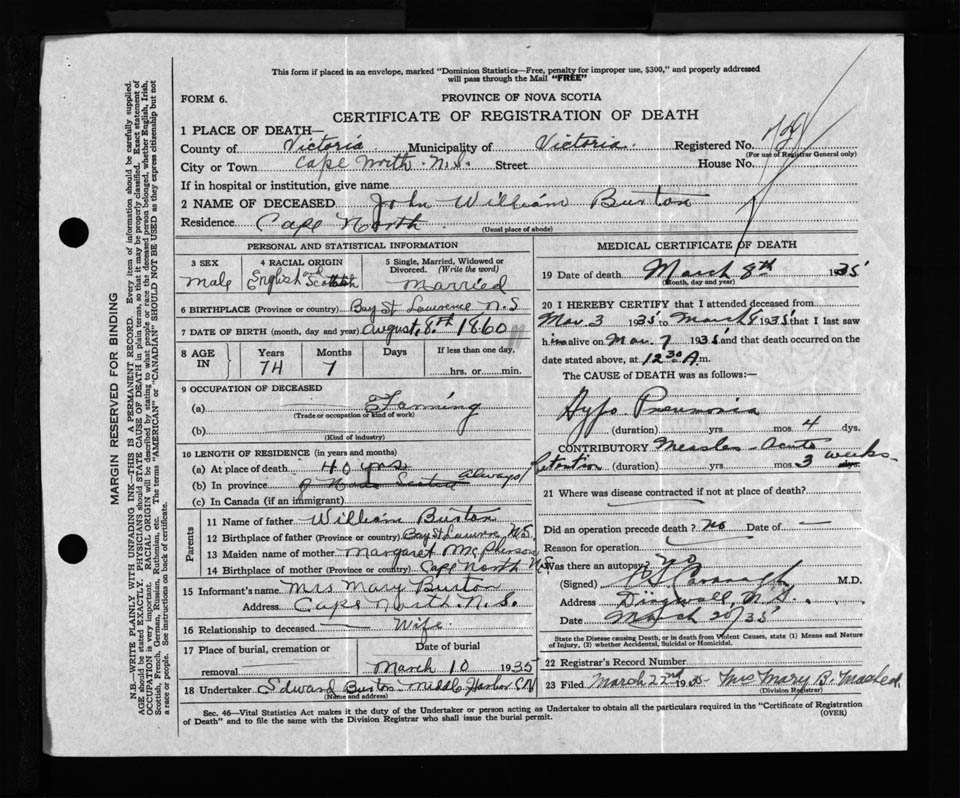 This form if placed in an envelope, marked "Dominion Statistics—Free, penalty for improper use, $300," and properly addressed
will pass through the Mail "FREE"
FORM 6.
PROVINCE OF NOVA SCOTIA
CERTIFICATE OF REGISTRATION OF DEATH
1 PLACE OF DEATH—
County of Victoria Municipality of Victoria. Registered No.
(For use of Registrar General only)
City or Town Cape North. N.S. Street House No.
If in hospital or institution, give name
2 NAME OF DECEASED John William Burton
Residence Cape North
(Usual place of abode)
PERSONAL AND STATISTICAL INFORMATION
3 SEX
Male
4 RACIAL ORIGIN
English and Scottish
5 Single, Married, Widowed or
Divorced. (Write the word)
Married
6 BIRTHPLACE (Province or country) Bay St Lawrence N.S
7 DATE OF BIRTH (month, day and year) August, 8th 1860
8 AGE
IN
Years
74
Months
7
Days
If less than one day,
hrs. or min.
9 OCCUPATION OF DECEASED
(a) Farming
(Trade or occupation or kind of work)
(b)
(Kind of industry)
10 LENGTH OF RESIDENCE (in years and months)
(a) At place of death 40 yrs
(b) In province of Nova Scotia always
(c) In Canada (if an immigrant)
Parents
11 Name of father William Burton
12 Birthplace of father (Province or country) Bay St Lawrence, N.S.
13 Maiden name of mother Margaret McPherson
14 Birthplace of mother (Province or country) Cape North N.S.
15 Informant's name Mrs Mary Burton
Address Cape North. N.S.
16 Relationship to deceased Wife.
17 Place of burial, cremation or
removal
Date of burial
March 10 1935
18 Undertaker Edward Burton Middle Harbor C.N
(Name and address)
MEDICAL CERTIFICATE OF DEATH
19 Date of death March 8th 1935
(Month, day and year)
20 I HEREBY CERTIFY that I attended deceased from
Mar. 3 1935 to March 8 1935 that I last saw
him alive on Mar. 7 1935 and that death occurred on the
date stated above, at 12 30 A. m.
The CAUSE OF DEATH was as follows:—
Hypo. Pneumonia
(duration) yrs. mos. 4 dys.
CONTRIBUTORY Measles - Acute
Retention (duration) yrs. mos. 3 weeks dys.
21 Where was disease contracted if not at place of death?
Did an operation precede death? No Date of —
Reason for operation
Was there an autopsy? No
(Signed) Cavanagh M.D.
Address Dingwall, N.S.
Date March 20/35
State the Disease causing Death, or in death from Violent Causes, state (1) Means and Nature
of Injury, (2) whether Accidental, Suicidal or Homicidal.
22 Registrar's Record Number
23 Filed March 22nd 1935 Mrs Mary B. Macleod
(Division Registrar)
Sec. 46—Vital Statistics Act makes it the duty of the Undertaker or person acting as Undertaker to obtain all the particulars required in the "Certificate of Registration
of Death" and to file the same with the Division Registrar who shall issue the burial permit.
(OVER)
MARGIN RESERVED FOR BINDING
N.B.—WRITE PLAINLY WITH UNFADING INK—THIS IS A PERMANENT RECORD. Every item of information should be carefully supplied.
AGE should be stated EXACTLY. PHYSICIANS should STATE CAUSE OF DEATH in plain terms, so that it may be properly classified. Exact statement of
OCCUPATION is very important. RACIAL ORIGIN will be described by stating to what people or race the deceased person belonged, whether English, Irish,
Scottish, French, German, Russian, Ruthenian, etc. The terms "AMERICAN" or "CANADIAN" SHOULD NOT BE USED as they express citizenship but not
a race or people. See instructions on back of certificate.